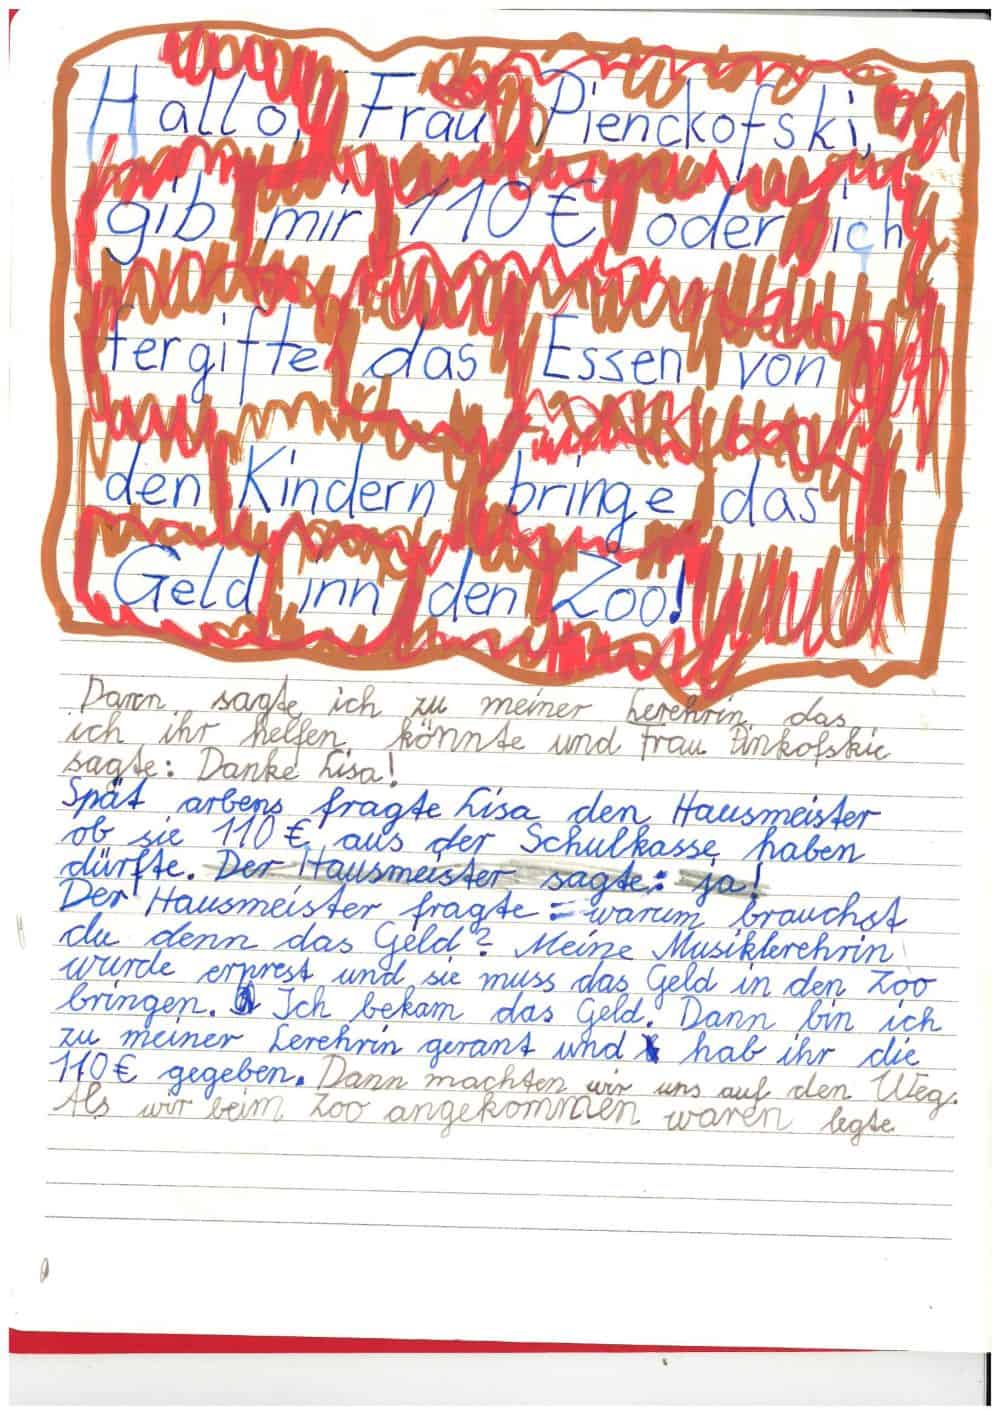 Hallo, Frau Pienckofski,
gib mir 110 € oder ich
fergifte das Essen von
den Kindern bringe das
Geld inn den Zoo!
Dann sagte ich zu meiner Lerehrin das
ich ihr helfen könnte und Frau Pinkofskie
sagte: Danke Lisa!
Spät arbens fragte Lisa den Hausmeister
ob sie 110 € aus der Schulkasse haben
dürfte. Der Hausmeister sagte: ja!
Der Hausmeister fragte: warum brauchst
du denn das Geld? Meine Musiklerehrin
wurde erprest und sie muss das Geld in den Zoo
bringen. Ich bekam das Geld. Dann bin ich
zu meiner Lerehrin gerant und hab ihr die
110 € gegeben. Dann machten wir uns auf den Weg.
Als wir beim Zoo angekommen waren legte